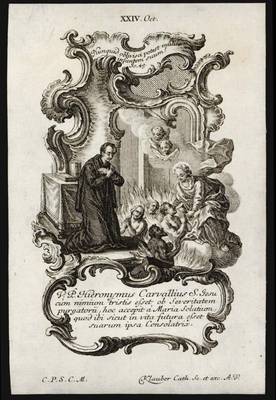 XXIV. Oct.
Nunquid oblivisci potest mulier
infantem suum?
Is. 49
V. P. Hieronymus Carvallius S. Jesu
cum nimium tristis esset ob Severitatem
purgatorii, hoc accepit a Maria Solatium
quod ibi sicut in vita futura esset
suarum ipsa Consolatrix.
C. P. S. C. M.
Klauber Cath. Sc. et exc. A. V.